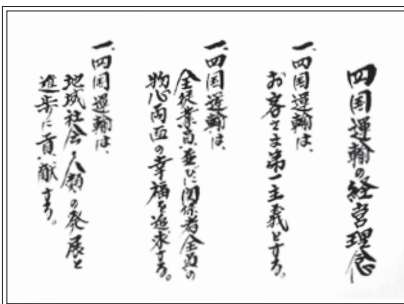 四国運輸の経営理念
一、四国運輸は、
お客さま第一主義とする。
一、四国運輸は、
全従業員並びに関係者全員の
物心両面の幸福を追求する。
一、四国運輸は、
地域社会と人類の発展と
進歩に貢献する。